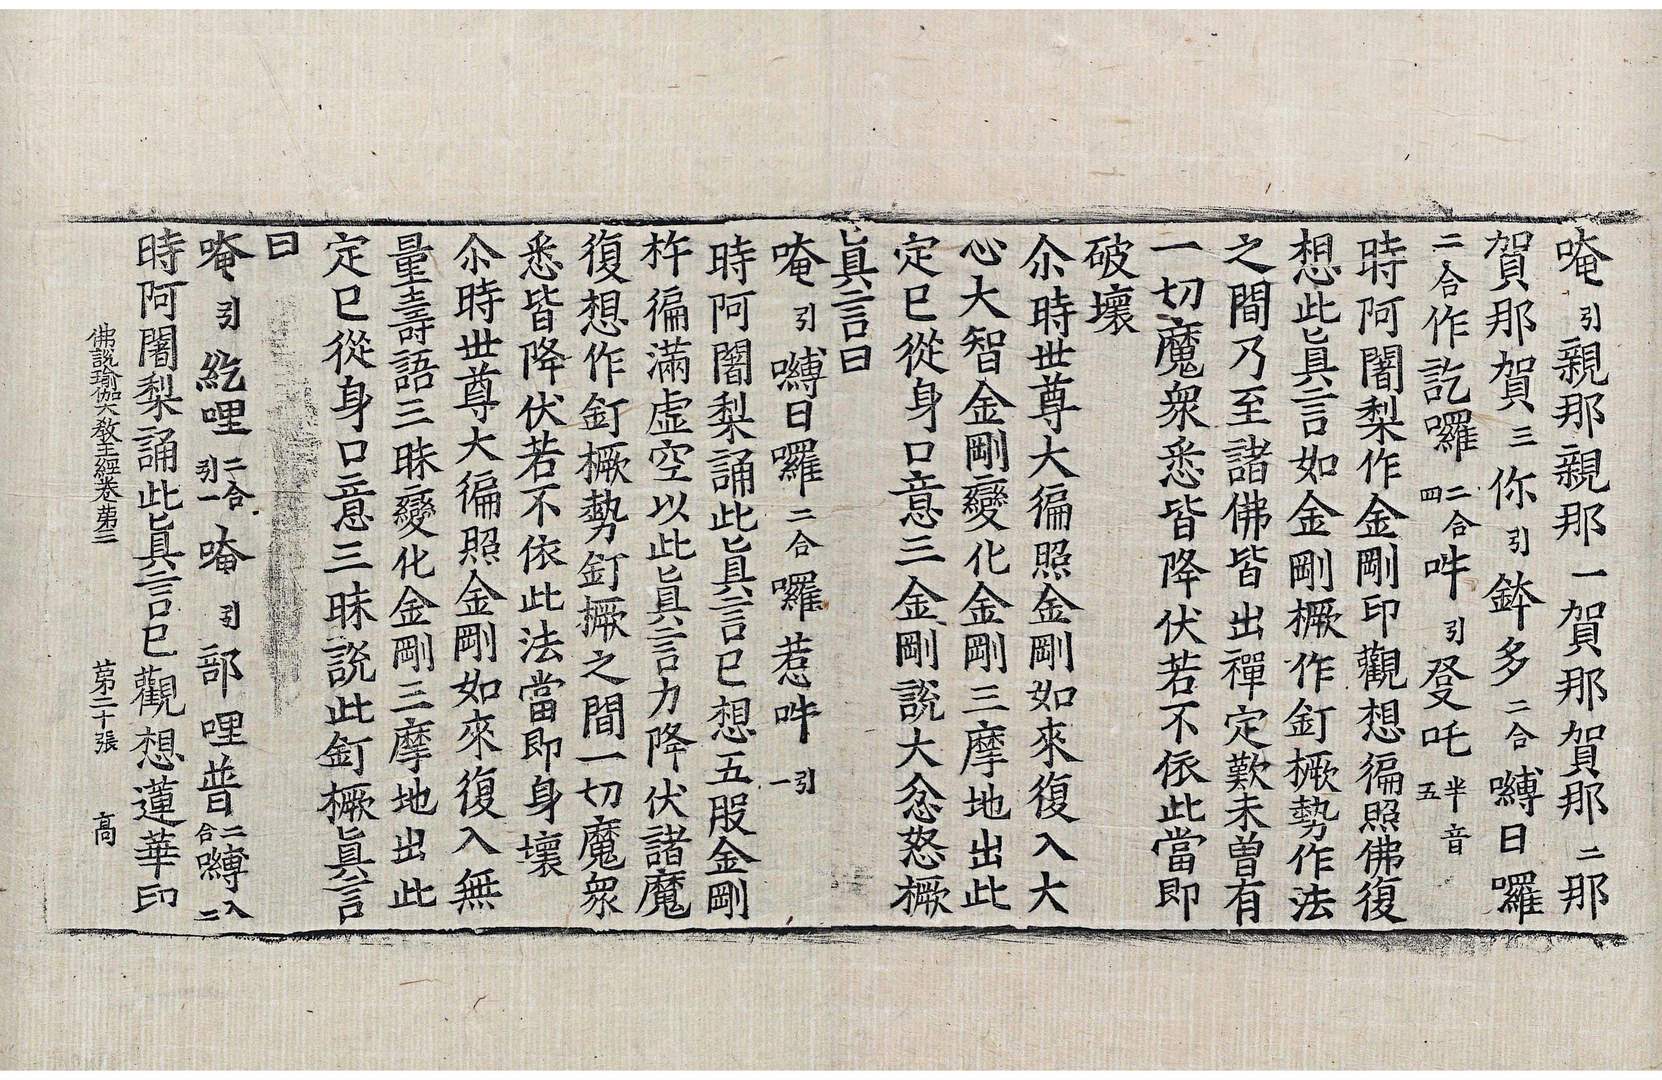 唵引親那親那一賀那賀那二那
賀那賀三你引鉢多二合嚩日囉
二合作訖囉二合四吽引發吒半音五
時阿闍梨作金剛印觀想徧照佛復
想此真言如金剛橛作釘橛勢作法
之間乃至諸佛皆出禪定歎未曾有
一切魔衆悉皆降伏若不依此當即
破壞
尒時世尊大徧照金剛如來復入大
心大智金剛變化金剛三摩地出此
定已從身口意三金剛說大忿怒橛
真言曰
唵引嚩日囉二合囉惹吽引一
時阿闍梨誦此真言已想五股金剛
杵徧滿虛空以此真言力降伏諸魔
復想作釘橛勢釘橛之間一切魔衆
悉皆降伏若不依此法當即身壞
尒時世尊大徧照金剛如來復入無
量壽語三昧變化金剛三摩地出此
定已從身口意三昧說此釘橛真言
曰
唵引紇哩二合引一唵引部哩普二合嚩入二
時阿闍梨誦此真言已觀想蓮華印
佛說瑜伽大教王經卷第三 第二十張 高